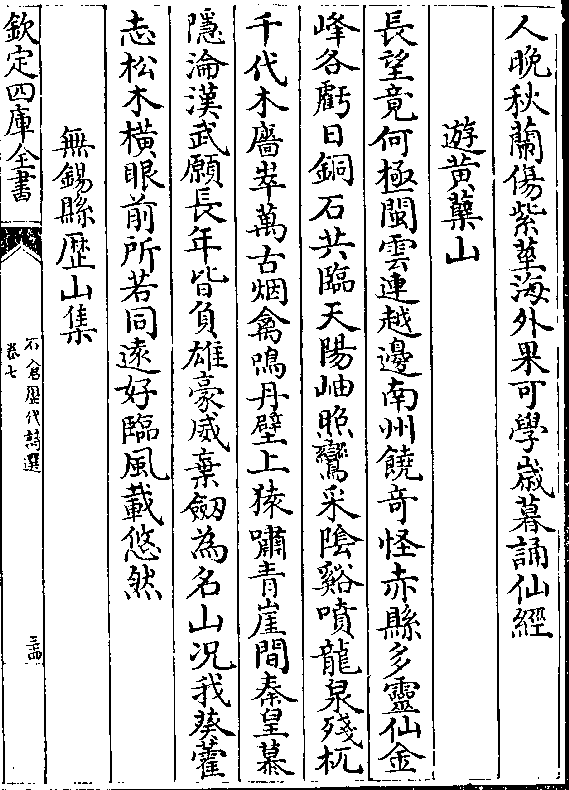 人晚秋蘭傷紫莖海外果可學嵗暮誦仙經
遊黄蘗山
長望竟何極閩雲連越邊南州饒竒怪赤縣多靈仙金
峰各虧日銅石共臨天陽岫照鸞采陰谿噴龍泉殘杌
千代木廧崒萬古烟禽鳴丹壁上猿嘯青崖間秦皇慕
隱淪漢武願長年皆負雄豪威棄劔為名山况我葵藿
志松木橫眼前所若同逺好臨風載悠然
無錫縣歴山集
欽定四庫全書
石倉歴代詩選
卷七